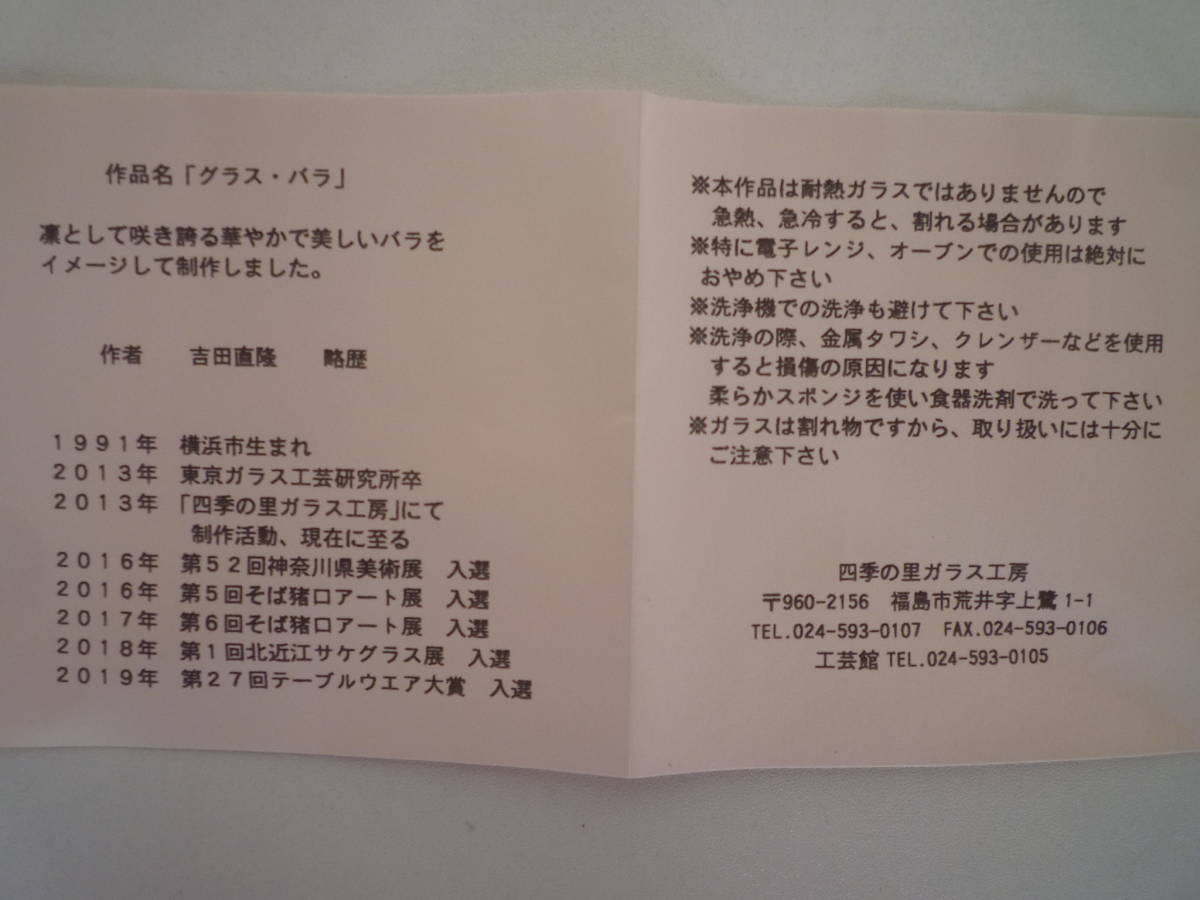 作品名「グラス・バラ」
凛として咲き誇る華やかで美しいバラを
イメージして制作しました。
作者　吉田直隆　略歴
１９９１年　横浜市生まれ
２０１３年　東京ガラス工芸研究所卒
２０１３年　「四季の里ガラス工房」にて
制作活動、現在に至る
２０１６年　第５２回神奈川県美術展　入選
２０１６年　第５回そば猪口アート展　入選
２０１７年　第６回そば猪口アート展　入選
２０１８年　第１回北近江サケグラス展　入選
２０１９年　第２７回テーブルウエア大賞　入選
※本作品は耐熱ガラスではありませんので
急熱、急冷すると、割れる場合があります
※特に電子レンジ、オーブンでの使用は絶対に
おやめ下さい
※洗浄機での洗浄も避けて下さい
※洗浄の際、金属タワシ、クレンザーなどを使用
すると損傷の原因になります
柔らかスポンジを使い食器洗剤で洗って下さい
※ガラスは割れ物ですから、取り扱いには十分に
ご注意下さい
四季の里ガラス工房
〒960-2156　福島市荒井字上鷺1-1
TEL.024-593-0107　FAX.024-593-0106
工芸館 TEL.024-593-0105